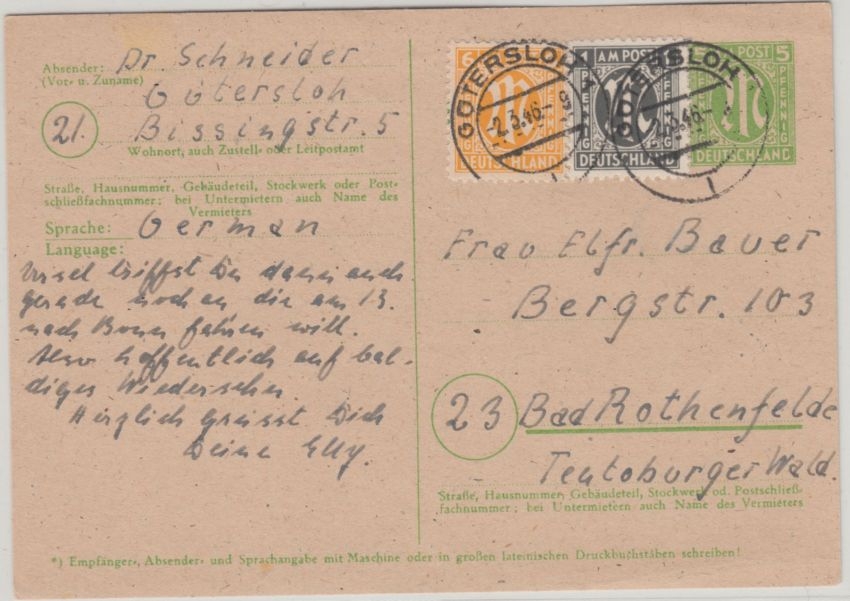 Absender: Dr. Schneider
(Vor- u. Zuname)
Gütersloh
21. Bissingstr. 5
Wohnort, auch Zustell- oder Leitpostamt
Straße, Hausnummer, Gebäudeteil, Stockwerk oder Post-
schließfachnummer; bei Untermietern auch Name des
Vermieters
Sprache: German
Language:
Ursel triffst Du dann auch
gerade noch an die am 13.
nach Bonn fahren will.
Also hoffentlich auf bal-
diges Wiedersehen
Herzlich grüsst Dich
Deine Elly.
6 DEUTSCHLAND
AM POST PFENNIG DEUTSCHLAND
POST 5 PFENNIG DEUTSCHLAND
GÜTERSLOH -2.3.46.
GÜTERSLOH 2.3.46
Frau Elfr. Bauer
Bergstr. 103
23 Bad Rothenfelde
Teutoburger Wald.
Straße, Hausnummer, Gebäudeteil, Stockwerk od. Postschließ-
fachnummer; bei Untermietern auch Name des Vermieters
*) Empfänger-, Absender- und Sprachangabe mit Maschine oder in großen lateinischen Druckbuchstaben schreiben!